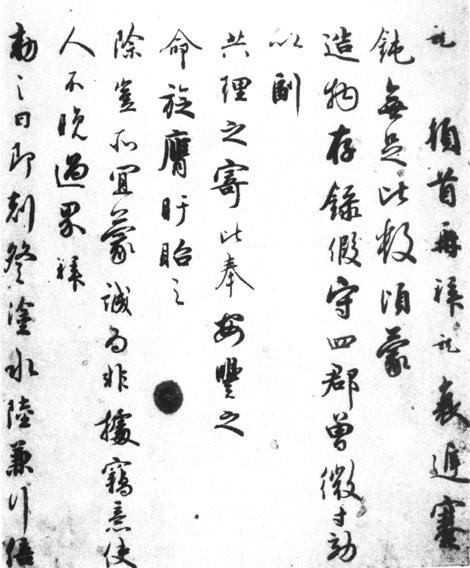 頓首再拜 衰遲蹇
鈍無足比數頃蒙
造物存錄假守四郡曾微寸効
以副
共理之寄比奉安豐之
命旋膺盱眙之
除豈所宜蒙誠為非據竊意使
人不晚過界拜
勑之日即刻登塗水陸兼行倍